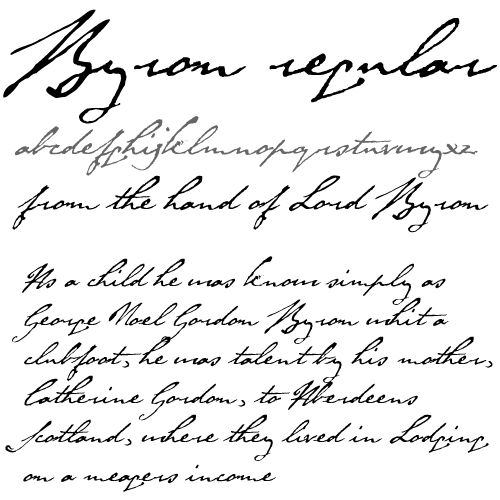 Byron regular
abcdefghijklmnopqrstuvwxyz
from the hand of Lord Byron
As a child he was known simply as
George Noel Gordon Byron whit a
clubfoot, he was talent by his mother,
Catherine Gordon, to Aberdeens
Scotland, where they lived in Lodging
on a meagers income